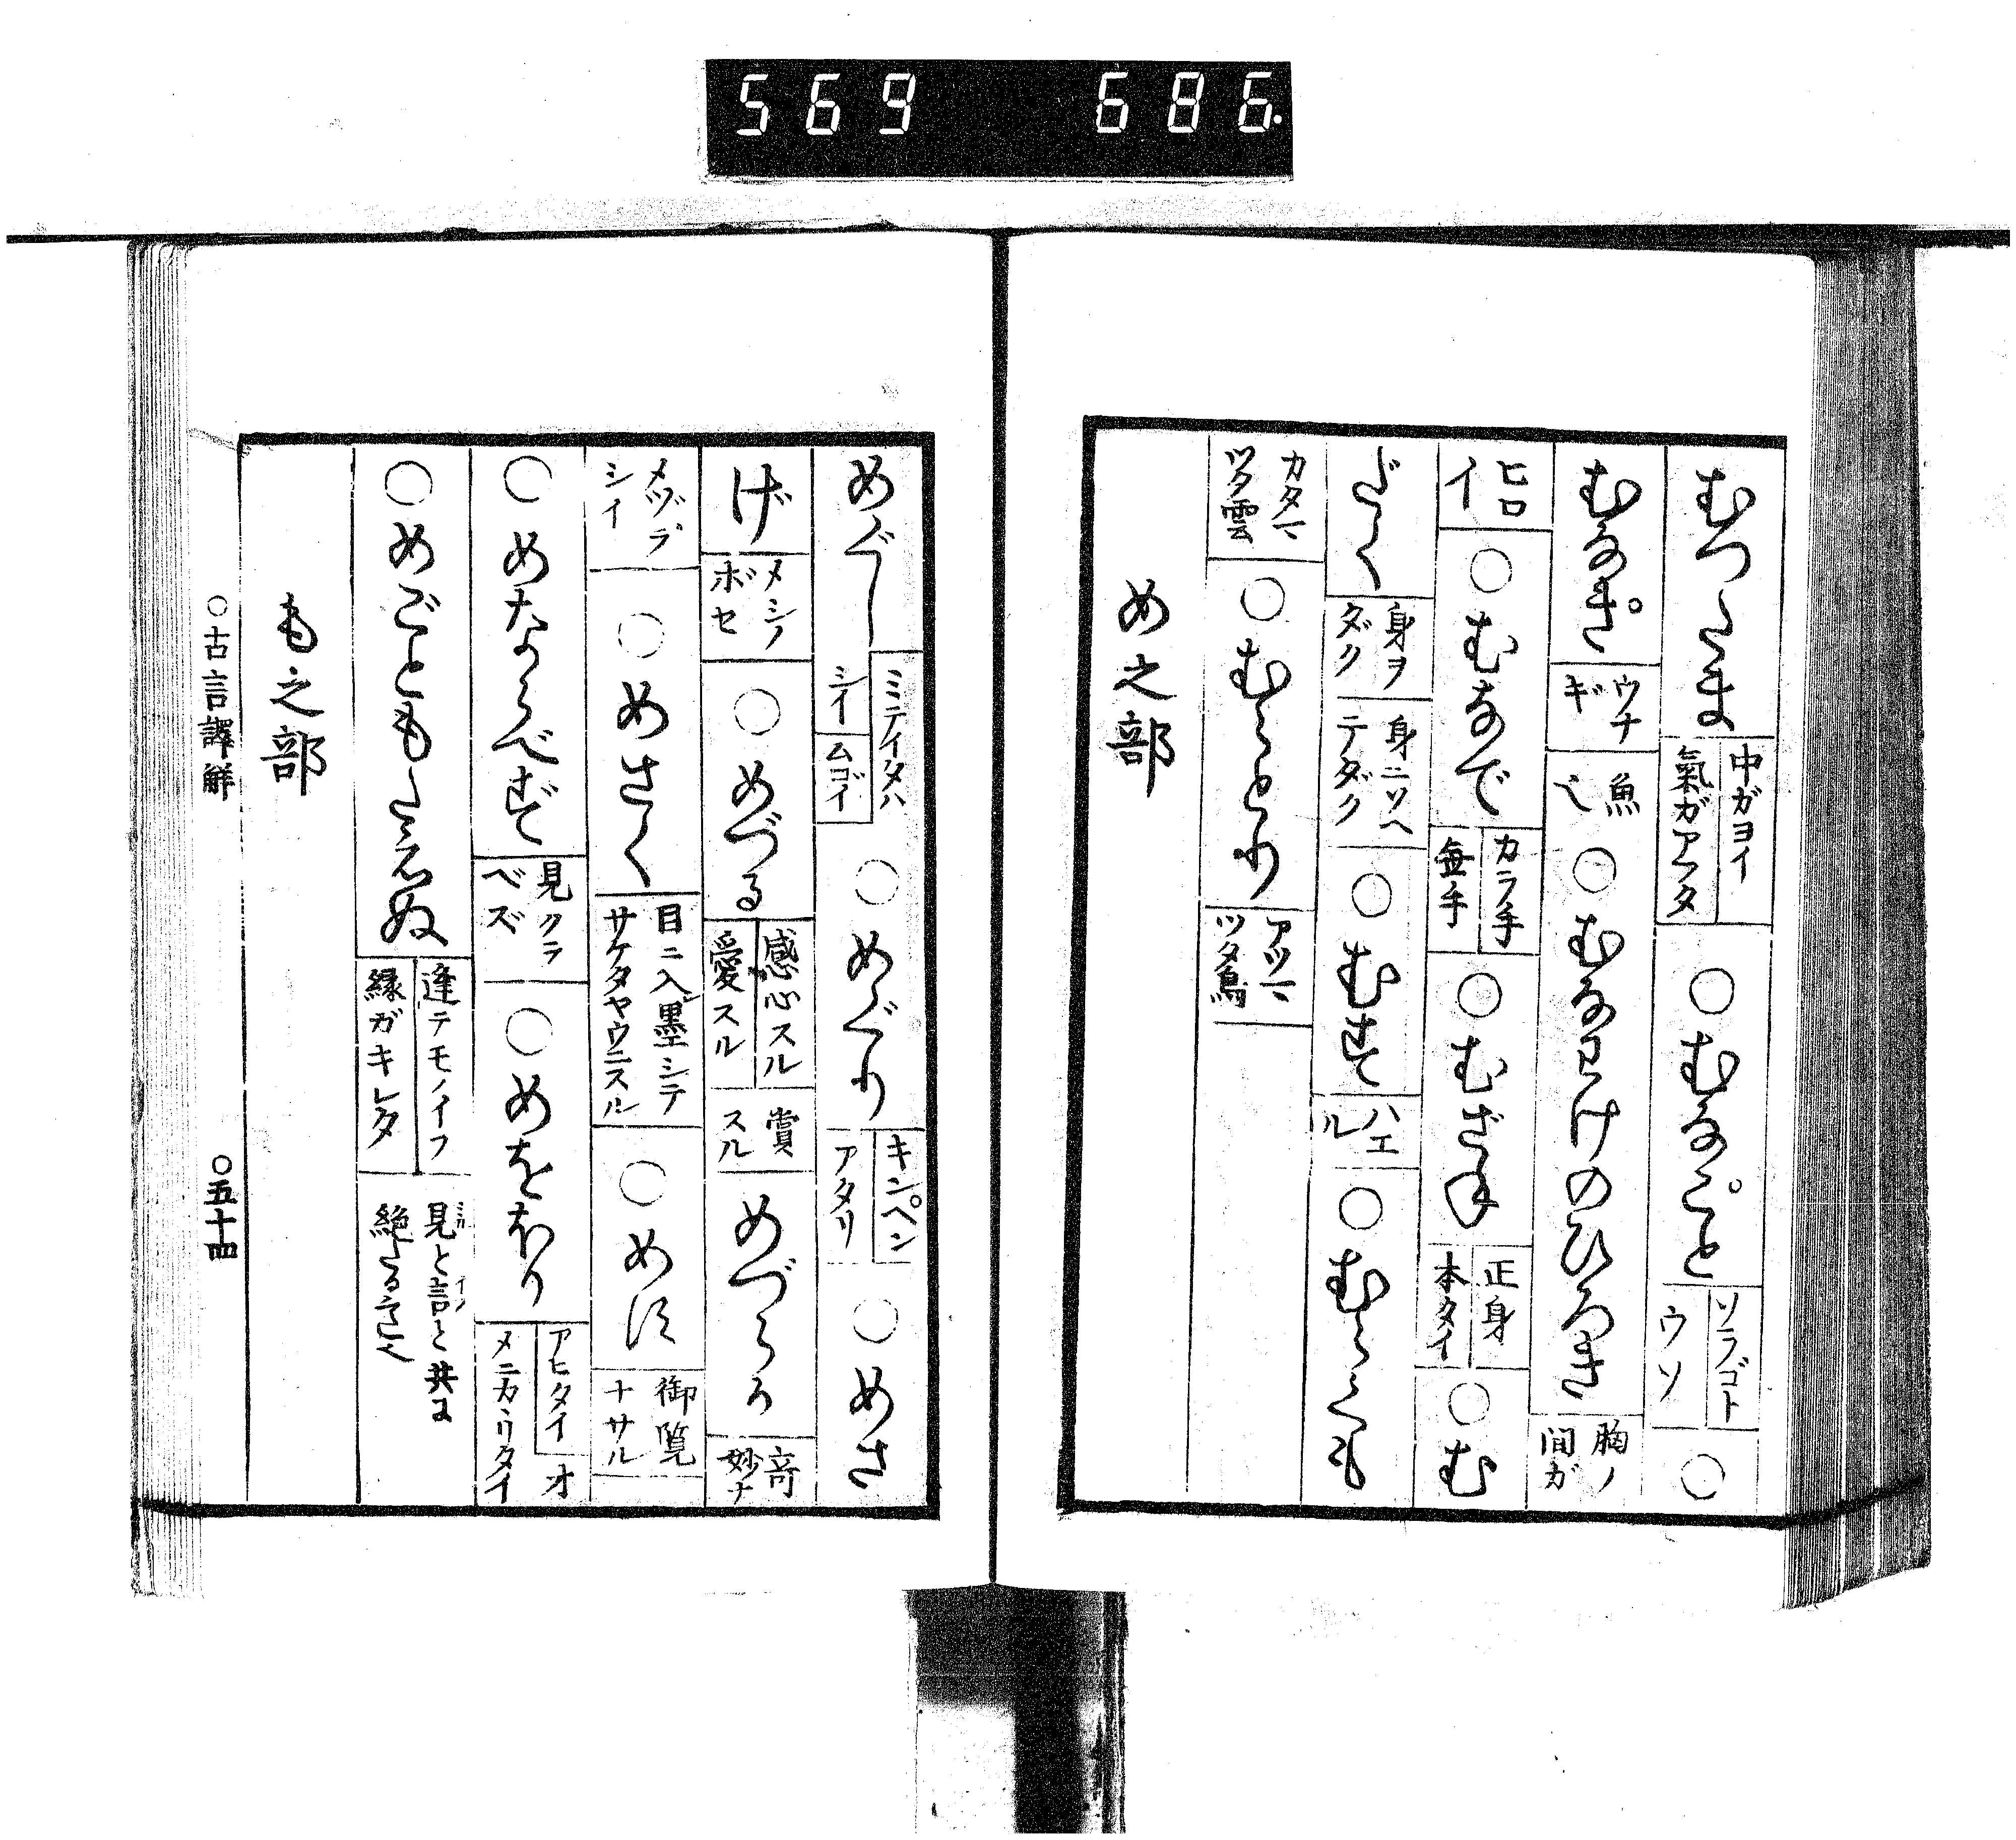 569 686.
むつたま 中ガヨイ 氣ガアフタ ○むなこ゜と ソラゴト ウソ ○
むなき゜ ウナギ 魚也 ○むなわけのひろき 胸ノ間ガ
ヒロイ ○むなで カラ手 無手 ○むざね 正身 本タイ ○む
だく 身ヲダク 身ニソヘテダク ○むす ハエル ○むらくも
カタマツタ雲 ○むらとり アツマツタ鳥
め之部
めぐし ミテイタハシイ ムゴイ ○めぐり キンペン アタリ ○めさ
げ メシノボセ ○めづる 感心スル 愛スル 賞スル めづらか 奇妙ナ
メヅラシイ ○めさく 目ニ入墨シテサケタヤウニスル ○めす 御覧ナサル
○めならべず 見クラベズ ○めをほり アヒタイ オメニカヽリタイ
○めごともたえぬ 逢テモノイフ縁ガキレタ 見と言と共に絶たる意也
も之部
○古言譯解 ○五十四